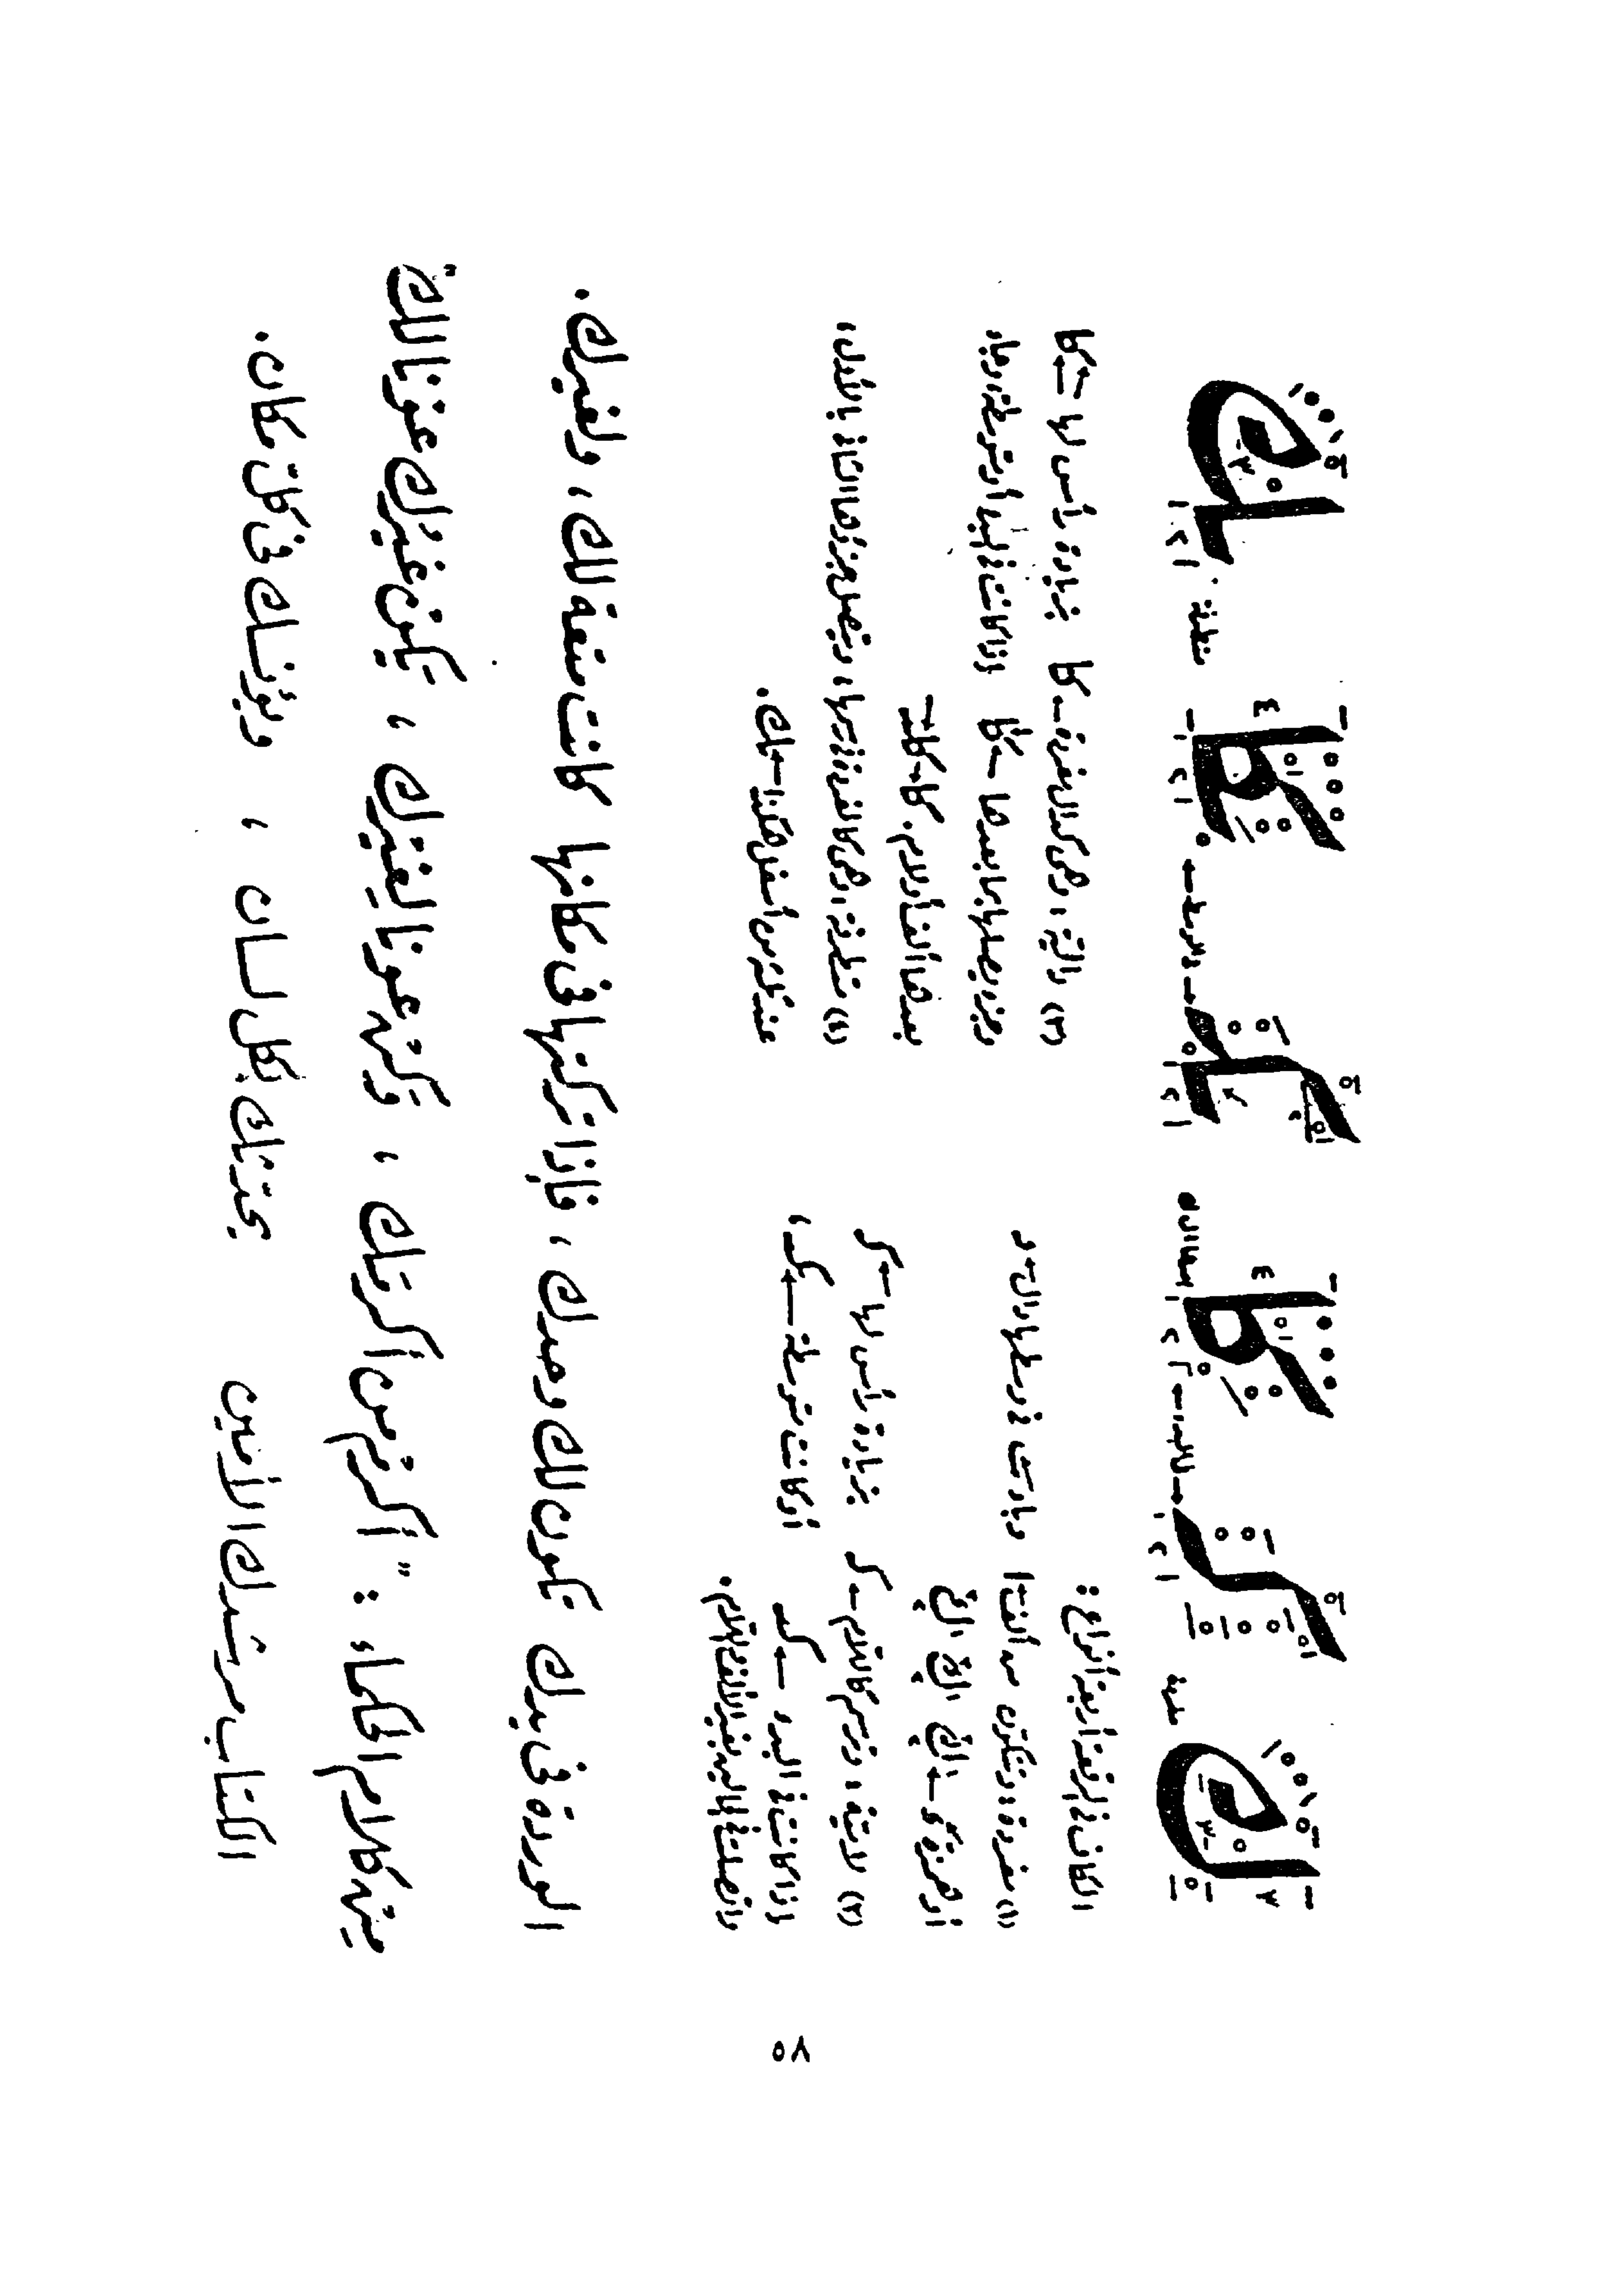 مفردة للابتداء متوسطة متطرفة
الكاف في الرقعة أربعة أنواع :
(١) مفردة ، وتتكون من ألف ا وباء ب في وسطها دال د
أو همزة ء
(٢) لامية ، وترسم كاللام ـ لـ بزيادة رأس لها ـ كـ
إذا كانت في البدء ـ كـ أو كانت متوسطة ـ كـ ،
واتصلت بغير الألف واللام .
(٣) دالية ، وهي كدال مفردة بزيادة رأس لها ـ كا
بما بعدها ـ كا إذا كانت في البدء أو متوسطة ، وجاء
بعدها ألف أو لام .
(٤) متطرفة ، وهي كالمفردة تماما ، ويتصل جزؤها الثاني بالأول ،
عند أسفل هكذا ـ ك .
الوردة في يدك تكون لك وحدك ، فإذا تركتها في مكانها كانت متعة لك ، ولغيرك .
من كلام الحكماء : " أكرم من أكرمك ، وكن عونا لغيرك ، يكن غيرك عونا لك "
الكتاب مرشدك الأمين يحدثك بكل لسان ، ويؤنسك في كل مكان .
٥٨